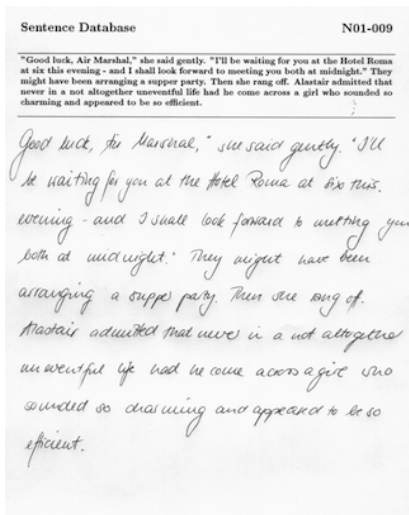 Sentence Database N01-009
"Good luck, Air Marshal," she said gently. "I'll be waiting for you at the Hotel Roma
at six this evening - and I shall look forward to meeting you both at midnight." They
might have been arranging a supper party. Then she rang off. Alastair admitted that
never in a not altogether uneventful life had he come across a girl who sounded so
charming and appeared to be so efficient.
Good luck, Air Marshal," she said gently. "I'll
be waiting for you at the Hotel Roma at six this
evening - and I shall look forward to metting you
both at midnight." They might have been
arranging a suppe party. Then she rang off.
Alastair admitted that never in a not altogether
uneventful life had he come across a girl who
sounded so charming and appeared to be so
efficient.